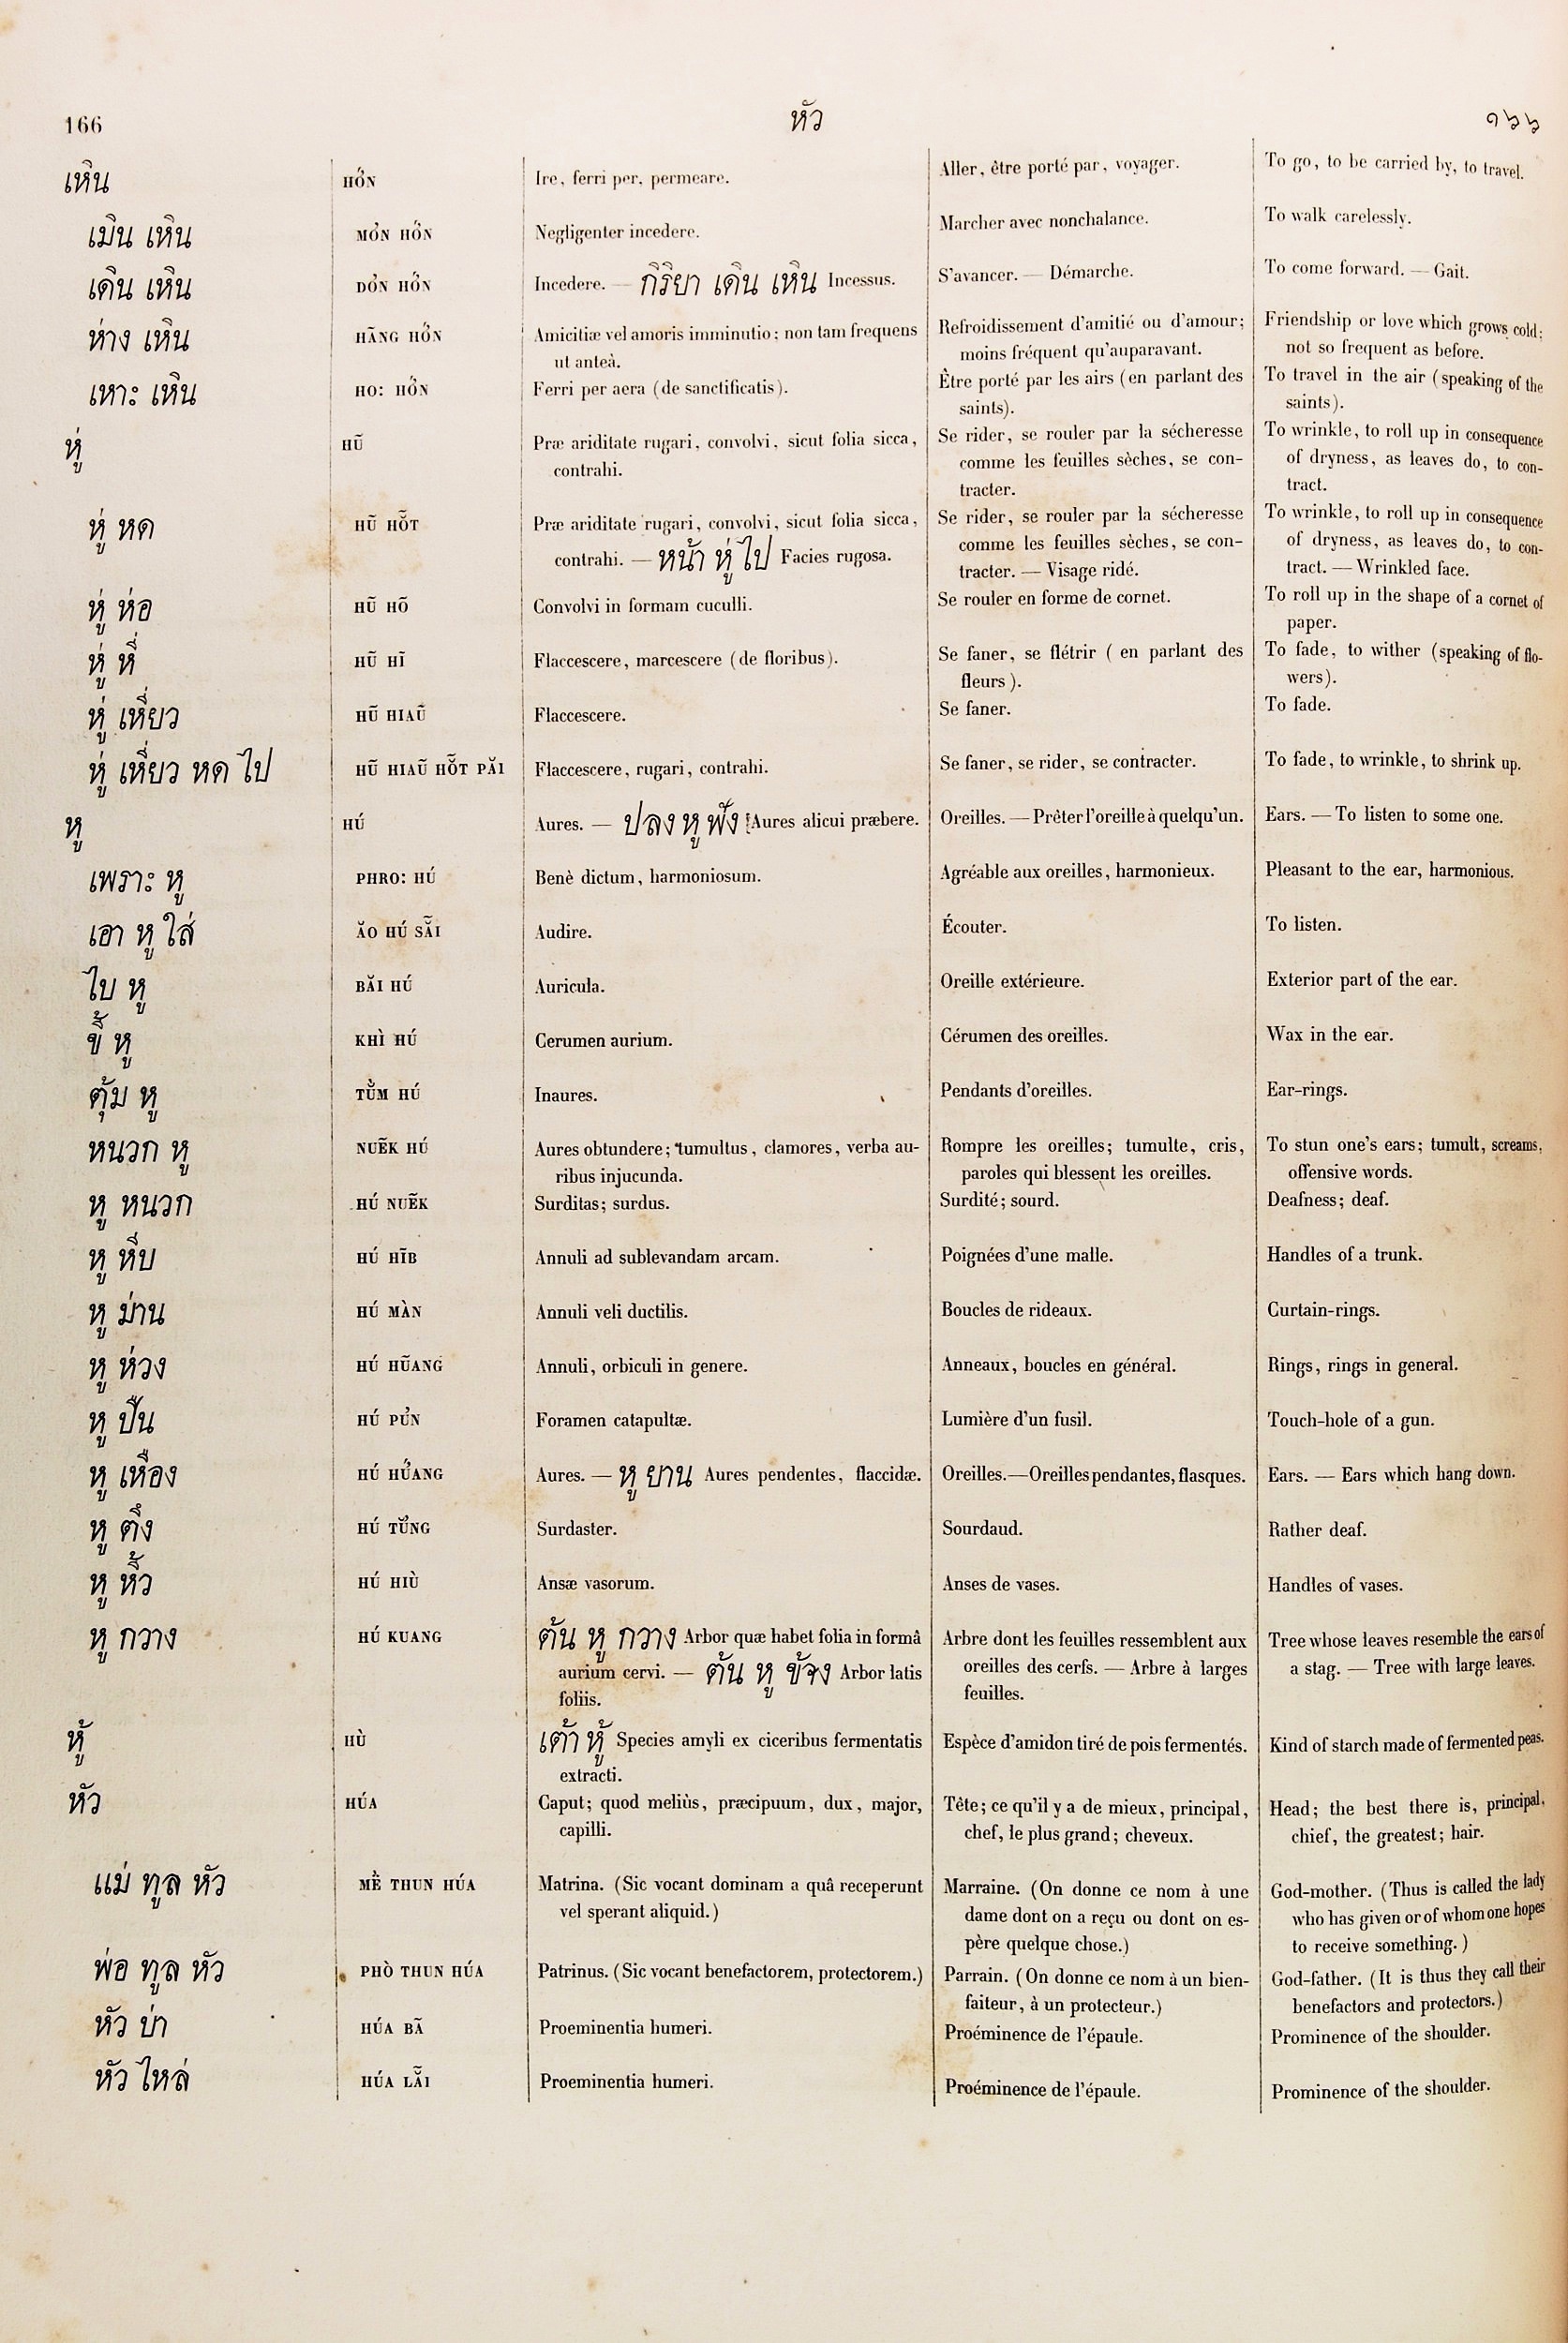 166 หัว ๑๖๖
เหิน HỎ́N Ire, ferri per, permeare. Aller, être porté par, voyager. To go, to be carried by, to travel.
เมิน เหิน MỎN HỎ́N Negligenter incedere. Marcher avec nonchalance. To walk carelessly.
เดิน เหิน DỎN HỎ́N Incedere. — กิริยา เดิน เหิน Incessus. S'avancer. — Démarche. To come forward. — Gait.
ห่าง เหิน HÃNG HỎ́N Amicitiæ vel amoris imminutio; non tam frequens Refroidissement d'amitié ou d'amour; Friendship or love which grows cold;
ut anteà. moins fréquent qu'auparavant. not so frequent as before.
เหาะ เหิน HO: HỎ́N Ferri per aera (de sanctificatis). Être porté par les airs (en parlant des To travel in the air (speaking of the
saints). saints).
หู่ HŨ Præ ariditate rugari, convolvi, sicut folia sicca, Se rider, se rouler par la sécheresse To wrinkle, to roll up in consequence
contrahi. comme les feuilles sèches, se con- of dryness, as leaves do, to con-
tracter. tract.
หู่ หด HŨ HŎ̃T Præ ariditate rugari, convolvi, sicut folia sicca, Se rider, se rouler par la sécheresse To wrinkle, to roll up in consequence
contrahi. — หน้า หู่ ไป Facies rugosa. comme les feuilles sèches, se con- of dryness, as leaves do, to con-
tracter. — Visage ridé. tract. — Wrinkled face.
หู่ ห่อ HŨ HÕ Convolvi in formam cuculli. Se rouler en forme de cornet. To roll up in the shape of a cornet of
paper.
หู่ หี่ HŨ HĨ Flaccescere, marcescere (de floribus). Se faner, se flétrir (en parlant des To fade, to wither (speaking of flo-
fleurs). wers).
หู่ เหี่ยว HŨ HIAŨ Flaccescere. Se faner. To fade.
หู่ เหี่ยว หด ไป HŨ HIAŨ HŎ̃T PĂI Flaccescere, rugari, contrahi. Se faner, se rider, se contracter. To fade, to wrinkle, to shrink up.
หู HÚ Aures. — ปลง หู ฟัง Aures alicui præbere. Oreilles. — Prêter l'oreille à quelqu'un. Ears. — To listen to some one.
เพราะ หู PHRO: HÚ Benè dictum, harmoniosum. Agréable aux oreilles, harmonieux. Pleasant to the ear, harmonious.
เอา หู ใส่ ĂO HÚ SẴI Audire. Écouter. To listen.
ใบ หู BĂI HÚ Auricula. Oreille extérieure. Exterior part of the ear.
ขี้ หู KHÌ HÚ Cerumen aurium. Cérumen des oreilles. Wax in the ear.
ตุ้ม หู TŬ̀M HÚ Inaures. Pendants d'oreilles. Ear-rings.
หนวก หู NUẼK HÚ Aures obtundere; tumultus, clamores, verba au- Rompre les oreilles; tumulte, cris, To stun one's ears; tumult, screams,
ribus injucunda. paroles qui blessent les oreilles. offensive words.
หู หนวก HÚ NUẼK Surditas; surdus. Surdité; sourd. Deafness; deaf.
หู หีบ HÚ HĨB Annuli ad sublevandam arcam. Poignées d'une malle. Handles of a trunk.
หู ม่าน HÚ MÀN Annuli veli ductilis. Boucles de rideaux. Curtain-rings.
หู ห่วง HÚ HŨANG Annuli, orbiculi in genere. Anneaux, boucles en général. Rings, rings in general.
หู ปืน HÚ PỦN Foramen catapultæ. Lumière d'un fusil. Touch-hole of a gun.
หู เหือง HÚ HỦ́ANG Aures. — หู ยาน Aures pendentes, flaccidæ. Oreilles.—Oreilles pendantes, flasques. Ears. — Ears which hang down.
หู ตึง HÚ TỦ̆NG Surdaster. Sourdaud. Rather deaf.
หู หิ้ว HÚ HIÙ Ansæ vasorum. Anses de vases. Handles of vases.
หู กวาง HÚ KUANG ต้น หู กวาง Arbor quæ habet folia in formâ Arbre dont les feuilles ressemblent aux Tree whose leaves resemble the ears of
aurium cervi. — ต้น หู ข้จง Arbor latis oreilles des cerfs. — Arbre à larges a stag. — Tree with large leaves.
foliis. feuilles.
หู้ HÙ เต้า หู้ Species amyli ex ciceribus fermentatis Espèce d'amidon tiré de pois fermentés. Kind of starch made of fermented peas.
extracti.
หัว HÚA Caput; quod meliùs, præcipuum, dux, major, Tête; ce qu'il y a de mieux, principal, Head; the best there is, principal,
capilli. chef, le plus grand; cheveux. chief, the greatest; hair.
แม่ ทูล หัว MẺ̀ THUN HÚA Matrina. (Sic vocant dominam a quâ receperunt Marraine. (On donne ce nom à une God-mother. (Thus is called the lady
vel sperant aliquid.) dame dont on a reçu ou dont on es- who has given or of whom one hopes
père quelque chose.) to receive something.)
พ่อ ทูล หัว PHÒ THUN HÚA Patrinus. (Sic vocant benefactorem, protectorem.) Parrain. (On donne ce nom à un bien- God-father. (It is thus they call their
faiteur, à un protecteur.) benefactors and protectors.)
หัว บ่า HÚA BÃ Proeminentia humeri. Proéminence de l'épaule. Prominence of the shoulder.
หัว ไหล่ HÚA LẴI Proeminentia humeri. Proéminence de l'épaule. Prominence of the shoulder.